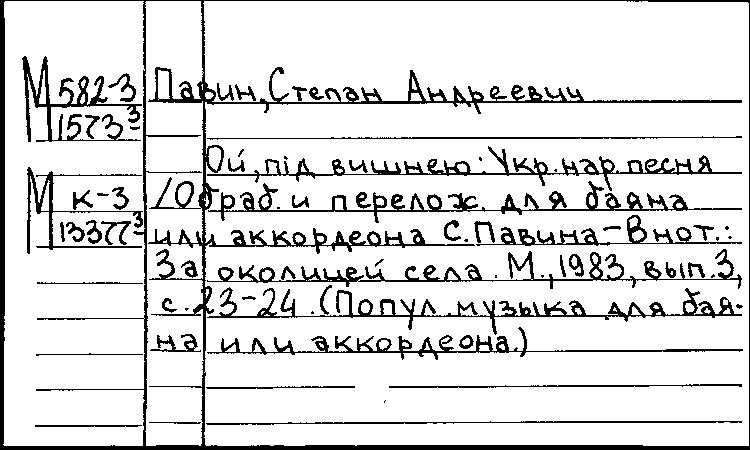 М 582-3 Павин, Степан Андреевич
1573 3
Ой, під вишнею: Укр. нар. песня
М к-3 / Обраб. и перелож. для баяна
13377 3 или аккордеона С. Павина.-В нот.:
За околицей села. М., 1983, вып. 3,
с. 23-24. (Попул. музыка для бая-
на или аккордеона.)